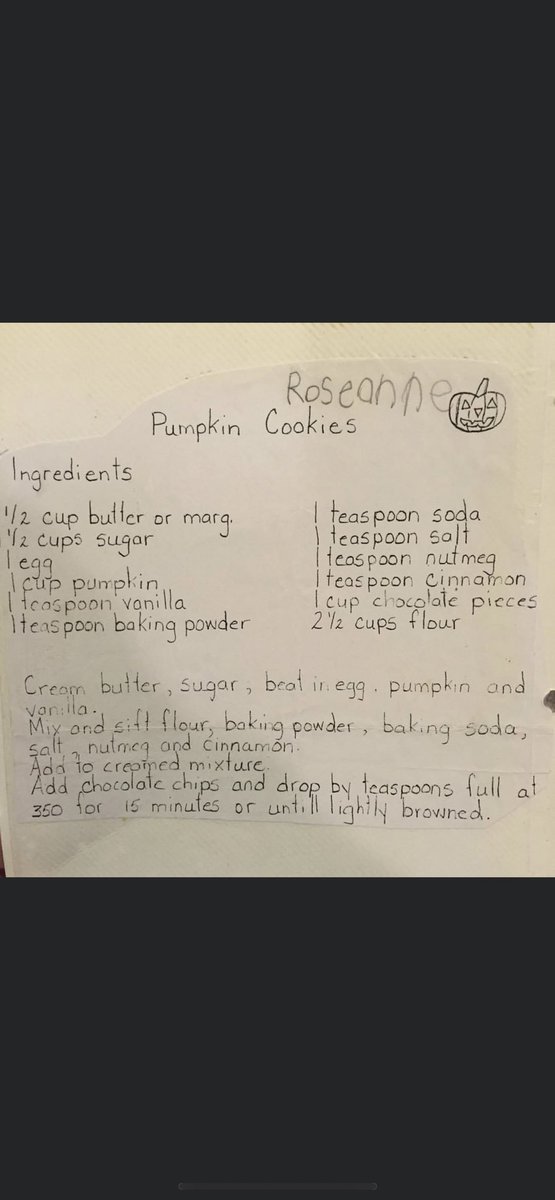 Roseanne
Pumpkin Cookies
Ingredients
1/2 cup butter or marg.
1 1/2 cups sugar
1 egg
1 cup pumpkin
1 teaspoon vanilla
1 teaspoon baking powder
1 teaspoon soda
1 teaspoon salt
1 teaspoon nutmeg
1 teaspoon cinnamon
1 cup chocolate pieces
2 1/2 cups flour
Cream butter, sugar, beat in egg. pumpkin and
vanilla.
Mix and sift flour, baking powder, baking soda,
salt, nutmeg and cinnamon.
Add to creamed mixture.
Add chocolate chips and drop by teaspoons full at
350 for 15 minutes or untill lightly browned.